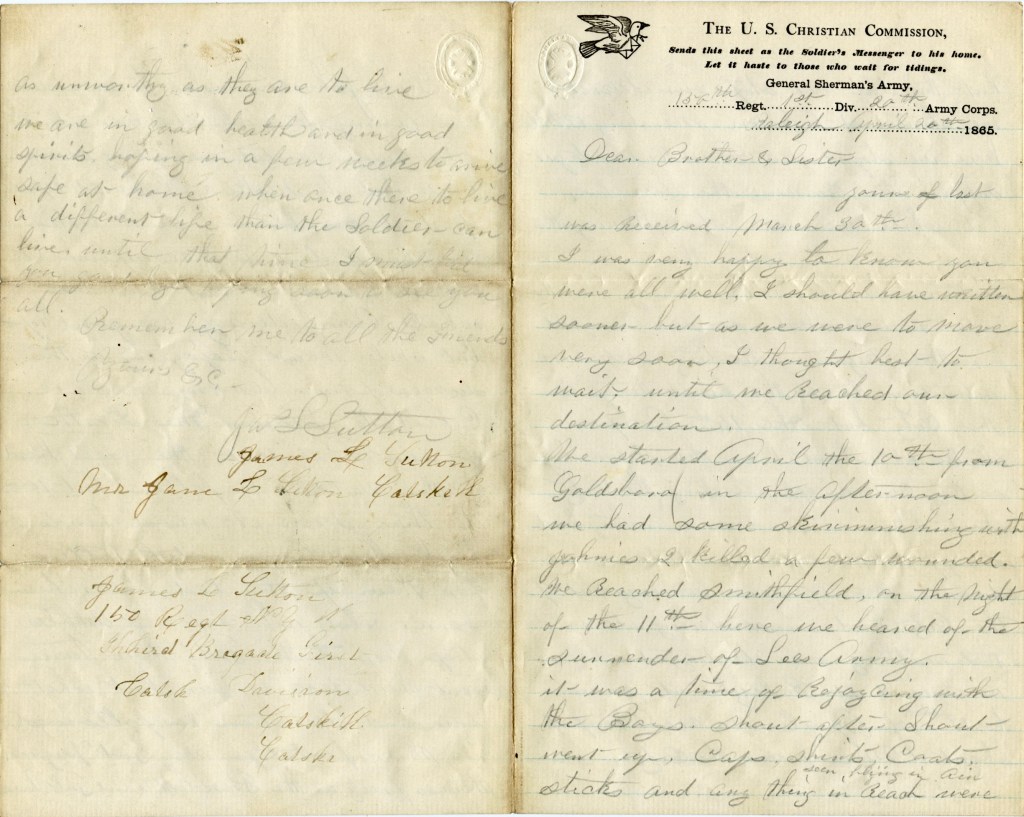 THE U. S. CHRISTIAN COMMISSION,
Sends this sheet as the Soldier's Messenger to his home.
Let it haste to those who wait for tidings.
General Sherman's Army,
150th Regt. 1st Div. 20th Army Corps.
Raleigh April 20th 1865.
Dear Brother & Sister
yours of last
was Received March 30th.
I was very happy to know you
were all well. I should have written
sooner but as we were to move
very soon, I thought best to
wait until we Reached our
destination.
We started April the 10th from
Goldsboro in the afternoon
we had some skirmishing with
Johnies 2 killed a few wounded.
We Reached Smithfield, on the Night
of the 11th here we heared of the
surrender of Lees Army.
it was a time of Rejoycing with
the Boys. Shout after Shout
went up, Caps, shirts, Coats,
seen flying in Air
sticks and any thing in Reach were
as unworthy as they are to live
we are in good health and in good
spirits. hoping in a few weeks to arive
safe at home. when once there to live
a different life than the Soldier can
live. until that time I must bid
you soon to see you
all.
Remember me to all the friends
Yours &c.
Jas L Sutton
James L Sutton
Mr Jane L Sutton Catskill
James L Sutton
150 Regt N Y
Thaird Bregade First
Catsk Division
Catskill
Catski